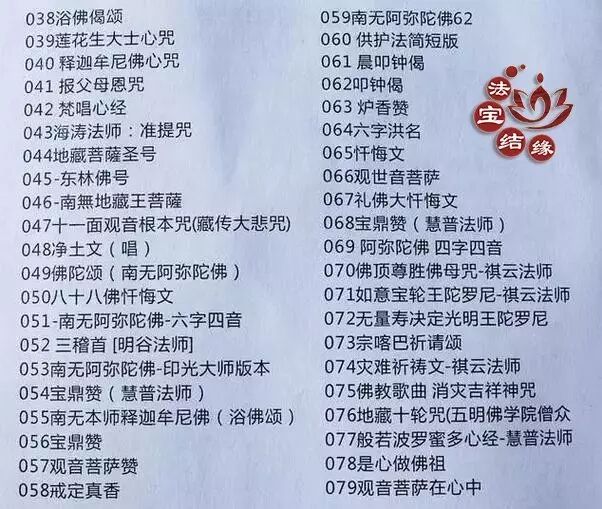 038浴佛偈颂
039莲花生大士心咒
040 释迦牟尼佛心咒
041 报父母恩咒
042 梵唱心经
043海涛法师：准提咒
044地藏菩萨圣号
045-东林佛号
046-南無地藏王菩薩
047十一面观音根本咒(藏传大悲咒)
048净土文（唱）
049佛陀颂（南无阿弥陀佛）
050八十八佛忏悔文
051-南无阿弥陀佛-六字四音
052 三稽首 [明谷法师]
053南无阿弥陀佛-印光大师版本
054宝鼎赞（慧普法师）
055南无本师释迦牟尼佛（浴佛颂）
056宝鼎赞
057观音菩萨赞
058戒定真香
059南无阿弥陀佛62
060 供护法简短版
061 晨叩钟偈
062叩钟偈
063 炉香赞
064六字洪名
065忏悔文
066观世音菩萨
067礼佛大忏悔文
068宝鼎赞（慧普法师）
069 阿弥陀佛 四字四音
070佛顶尊胜佛母咒-祺云法师
071如意宝轮王陀罗尼-祺云法师
072无量寿决定光明王陀罗尼
073宗喀巴祈请颂
074灾难祈祷文-祺云法师
075佛教歌曲 消灾吉祥神咒
076地藏十轮咒(五明佛学院僧众
077般若波罗蜜多心经-慧普法师
078是心做佛祖
079观音菩萨在心中
法宝结缘